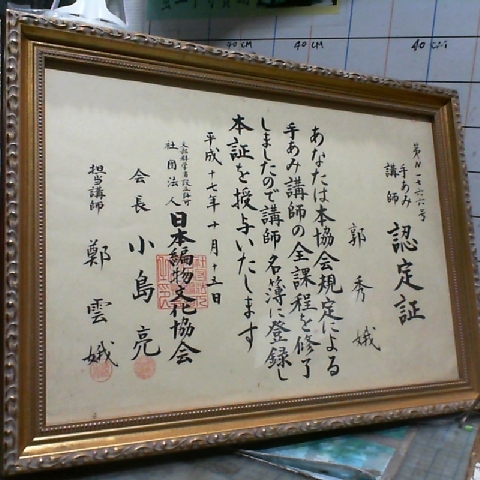 第N一七六六号
手あみ
講師
認定証
郭秀娥
あなたは本協会規定による
手あみ講師の全課程を修了
しましたので講師名簿に登録し
本証を授与いたします
平成十七年十月十三日
文部科学省設立許可
社団法人
日本編物文化協会
会長 小島亮
担当講師 鄭雲娥
40CM
40CM
40CM